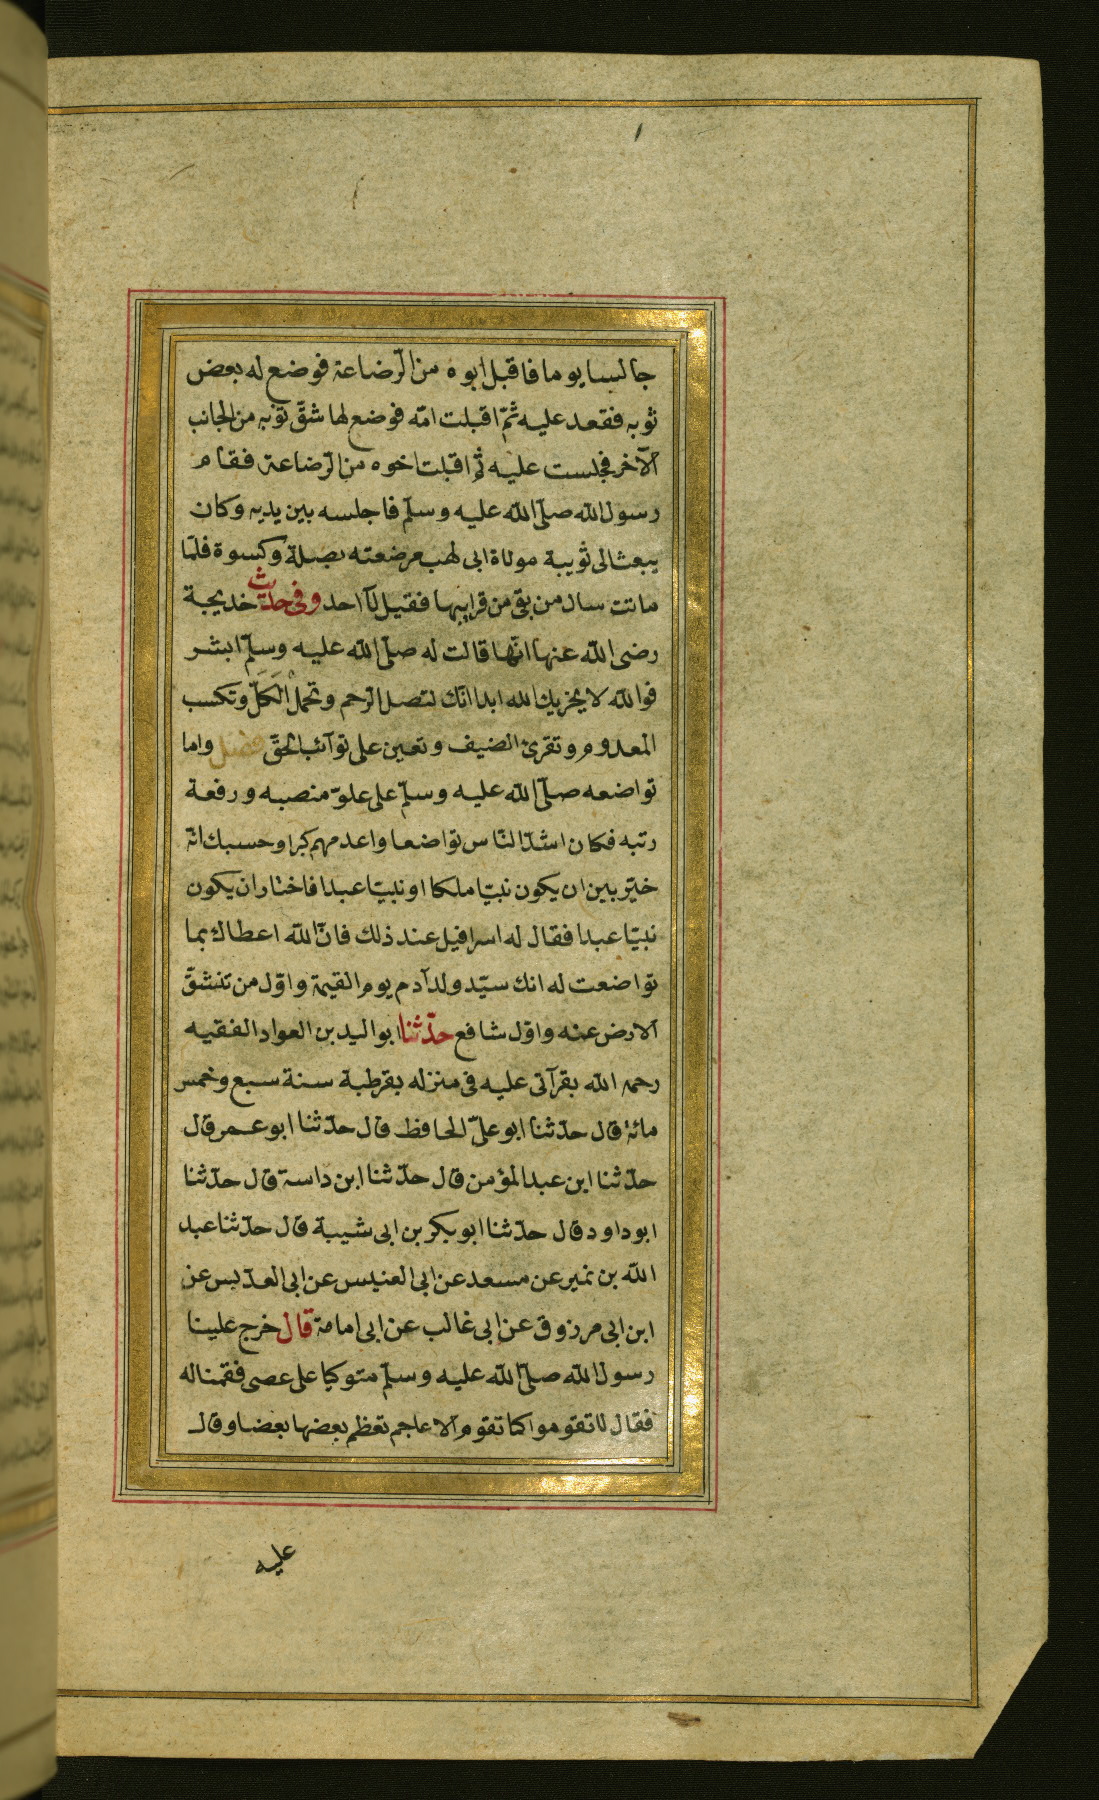 جالسا يوما فاقبل ابوه من الرّضاعة فوضع له بعض
ثوبه فقعد عليه ثمّ اقبلت امّه فوضع لها شقّ ثوبه من الجانب
الآخر فجلست عليه ثم اقبلت اخوه من الرّضاعة فقام
رسول الله صلّى الله عليه وسلّم فاجلسه بين يديه وكان
يبعث الى ثويبة مولاة ابى لهب مرضعته بصلة وكسوة فلمّا
ماتت سال من بقى من قرابتها فقيل لآ احد وفى حديث خديجة
رضى الله عنها انّها قالت له صلّى الله عليه وسلّم ابشر
فوالله لا يخزيك الله ابدا انّك لتصل الرّحم وتحمل الكلّ وتكسب
المعدوم وتقرئ الضيف وتعين على نوآئب الحقّ فصل واما
تواضعه صلّى الله عليه وسلّم على علوّ منصبه ورفعة
رتبه فكان اشدّ النّاس تواضعا واعدمهم كبرا وحسبك انّه
خيّر بين ان يكون نبيّا ملكا او نبيّا عبدا فاختار ان يكون
نبيّا عبدا فقال له اسرافيل عند ذلك فانّ الله اعطاك بما
تواضعت له انك سيّد ولد آدم يوم القيمة واوّل من تنشقّ
الارض عنه واوّل شافع حدّثنا ابو اليد بن العواد الفقيه
رحمه الله بقرآتى عليه فى منزله بقرطبة سنة سبع وخمس
مائة قال حدّثنا ابو علىّ الحافظ قال حدّثنا ابو عمر قال
حدّثنا ابن عبد المؤمن قال حدّثنا ابن داسة قال حدّثنا
ابو داود قال حدّثنا ابو بكر بن ابى شيبة قال حدّثنا عبد
الله بن نمير عن مسعد عن ابى العنبس عن ابى العدّبس عن
ابن ابى مرزوق عن ابى غالب عن ابى امامة قال خرج علينا
رسول الله صلّى الله عليه وسلّم متوكيا على عصى فقمنا له
فقال لا تقوموا كما تقوم الاعاجم تعظم بعضها بعضا وقال
عليه